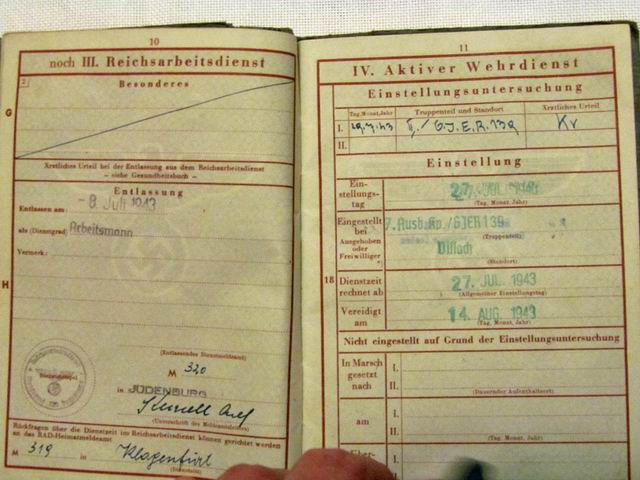 10
noch III. Reichsarbeitsdienst
Besonderes
G
Ärztliches Urteil bei der Entlassung aus dem Reichsarbeitsdienst
– siehe Gesundheitsbuch –
Entlassung
Entlassen am: - 8. Juli 1943
als (Dienstgrad) Arbeitsmann
Vermerk:
H
(Entlassendes Dienstmeldeamt)
M 320
in JUDENBURG
(Unterschrift des Meldeamtsleiters)
Rückfragen über die Dienstzeit im Reichsarbeitsdienst können gerichtet werden
an das RAD-Heimatmeldeamt
M 319 in Klagenfurt
(Dienstsitz)
11
IV. Aktiver Wehrdienst
Einstellungsuntersuchung
Tag, Monat, Jahr
Truppenteil und Standort
Ärztliches Urteil
I. 29.7.43 II./G.J.E.R. 139 Kv
II.
Einstellung
Einstellungs-
tag
27. JUL. 1943
(Tag, Monat, Jahr)
Eingestellt
bei
Ausgehoben
oder
Freiwilliger
7. Ausb. Kp./GJER 139
(Truppenteil)
Villach
(Standort)
18
Dienstzeit
rechnet ab
27. JUL. 1943
(Allgemeiner Einstellungstag)
Vereidigt
am
14. AUG. 1943
(Tag, Monat, Jahr)
Nicht eingestellt auf Grund der Einstellungsuntersuchung
In Marsch
gesetzt
nach
I.
II.
(Dauernder Aufenthaltsort)
am
I.
II.
(Tag, Monat, Jahr)
I.